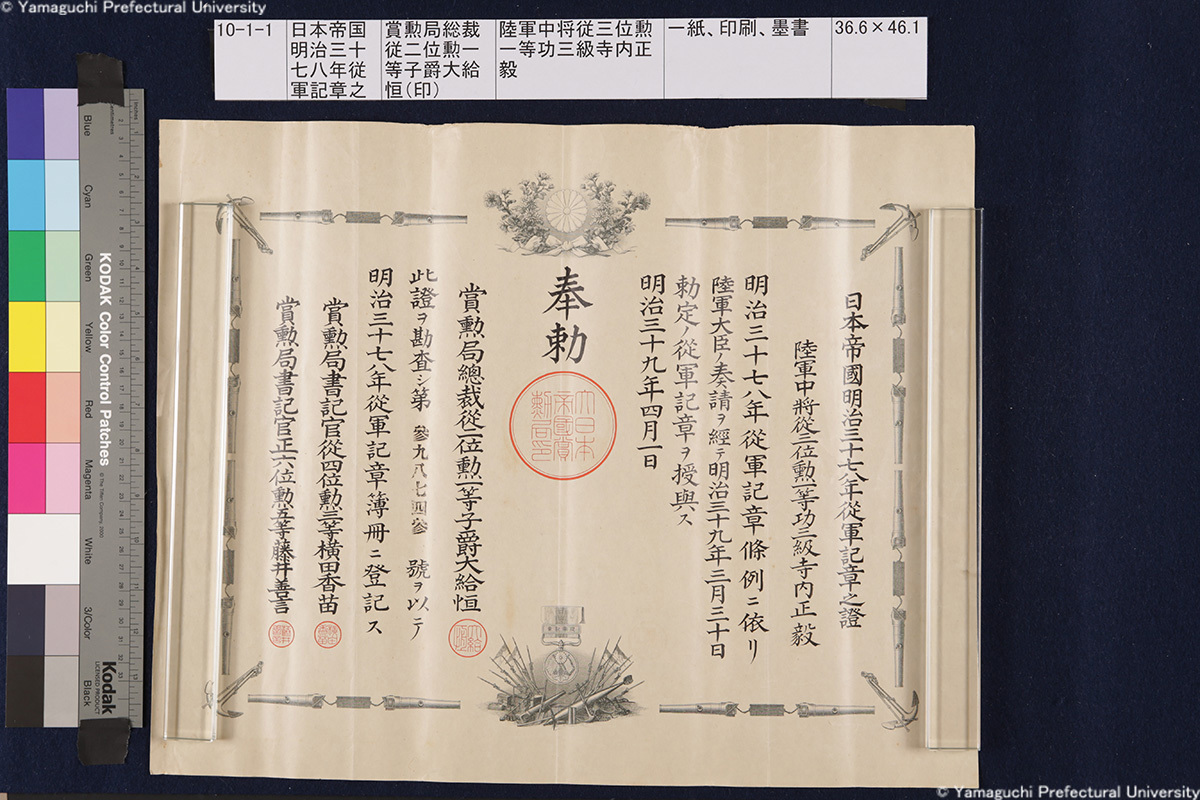 © Yamaguchi Prefectural University
10-1-1
日本帝国
明治三十
七八年従
軍記章之
賞勲局総裁
従二位勲一
等子爵大給
恒(印)
陸軍中将従三位勲
一等功三級寺内正
毅
一紙、印刷、墨書
36.6×46.1
日本帝國明治三十七八年從軍記章之證
陸軍中將從三位勲一等功三級寺内正毅
明治三十七八年從軍記章條例ニ依リ
陸軍大臣ノ奏請ヲ經テ明治三十九年三月三十日
勅定ノ從軍記章ヲ授與ス
明治三十九年四月一日
奉勅
大日本
帝國賞
勲局印
賞勲局總裁從二位勲一等子爵大給恒
此證ヲ勘査シ第參九八七四參號ヲ以テ
明治三十七八年從軍記章簿冊ニ登記ス
賞勲局書記官從四位勲三等横田香苗
賞勲局書記官正六位勲五等藤井善言
Blue
Cyan
Green
Yellow
Red
Magenta
White
3/Color
Black
KODAK Color Control Patches
Kodak
LICENSED PRODUCT
© Yamaguchi Prefectural University